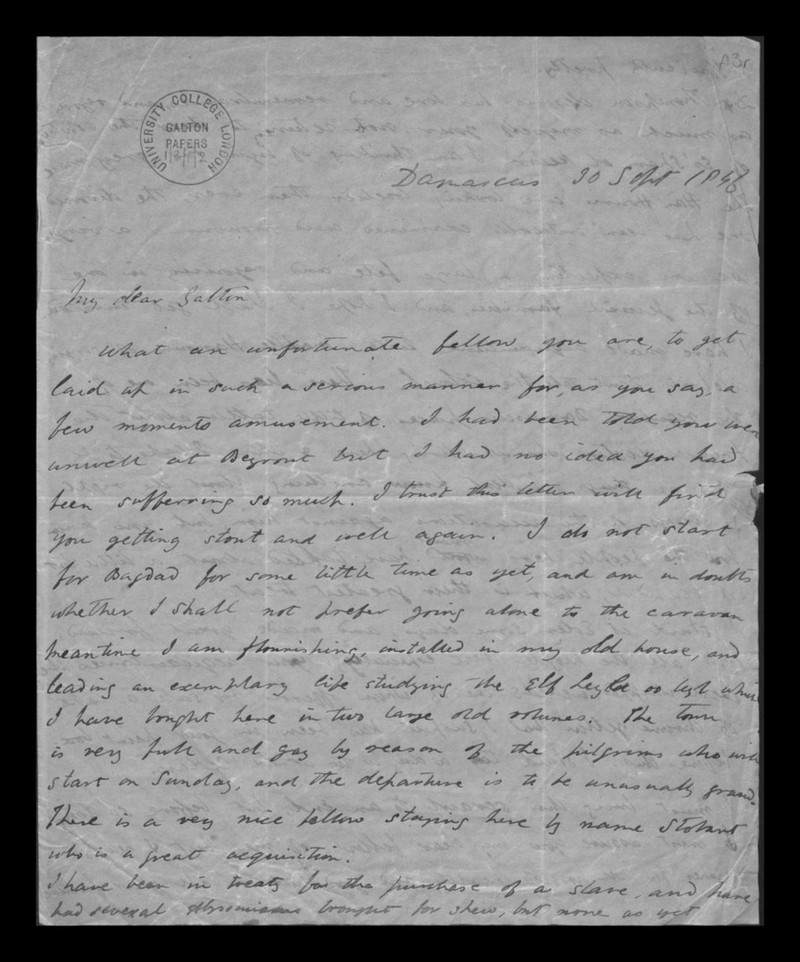 83r
UNIVERSITY COLLEGE LONDON
GALTON
PAPERS
Damascus 30 Sept 1846
My dear Galton
What an unfortunate fellow you are, to get
laid up in such a serious manner for, as you say, a
few moments amusement. I had been told you were
unwell at Beyrout but I had no idea you had
been suffering so much. I trust this letter will find
you getting stout and well again. I do not start
for Bagdad for some little time as yet, and am in doubts
whether I shall not prefer going alone to the caravan
meantime I am flourishing, installed in my old house, and
leading an exemplary life studying the Elf Leyla
I have bought here in two large old volumes. The town
is very full and gay by reason of the pilgrims who will
start on Sunday, and the departure is to be unusually grand.
There is a very nice fellow staying here by name Stobart
who is a great acquisition.
I have been in treaty for the purchase of a slave, and have
had several Abyssinians brought for shew, but none as yet